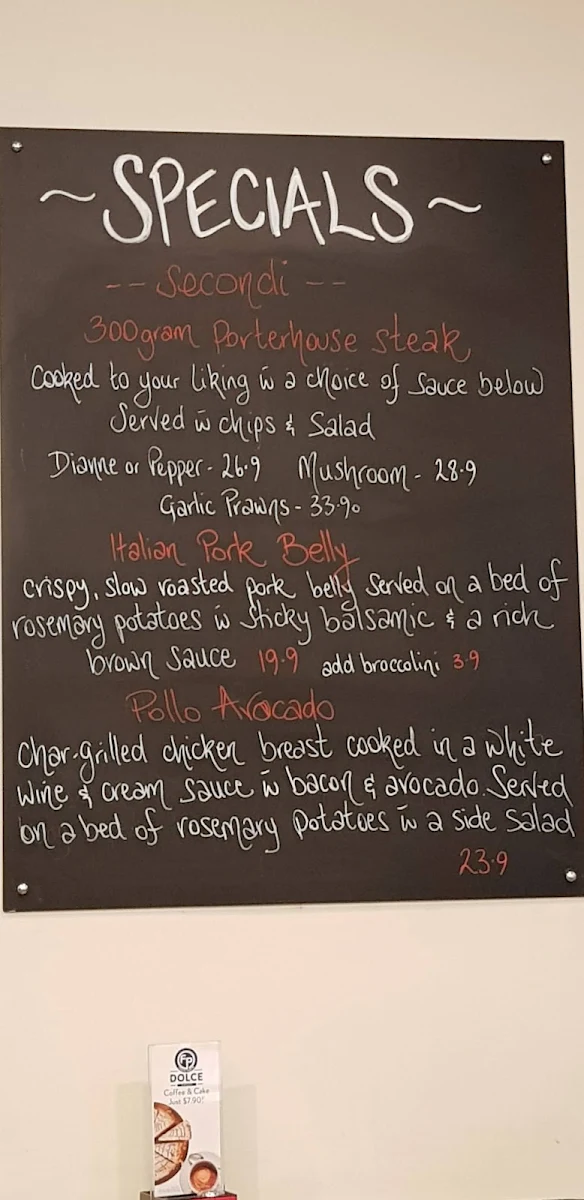 ~ SPECIALS ~
-- Secondi --
300gram Porterhouse steak
Cooked to your liking w̄ a choice of sauce below
Served w̄ chips & Salad
Dianne or Pepper - 26.9 Mushroom - 28.9
Garlic Prawns - 33.90
Italian Pork Belly
crispy, slow roasted pork belly served on a bed of
rosemary potatoes w̄ sticky balsamic & a rich
brown sauce 19.9 add broccolini 3.9
Pollo Avocado
Char-grilled chicken breast cooked in a white
wine & cream sauce w̄ bacon & avocado. Served
on a bed of rosemary potatoes w̄ a side salad
23.9
FP
DOLCE
Coffee & Cake
Just $7.90!